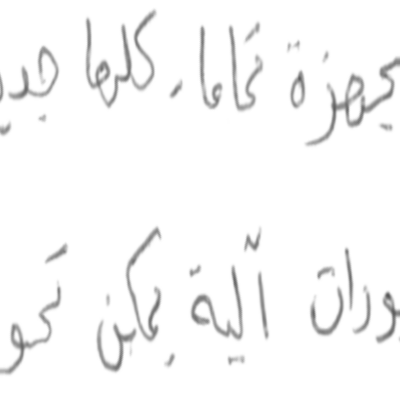 مجهزة تماما، كلها جديد
ورات آلية يمكن تحو